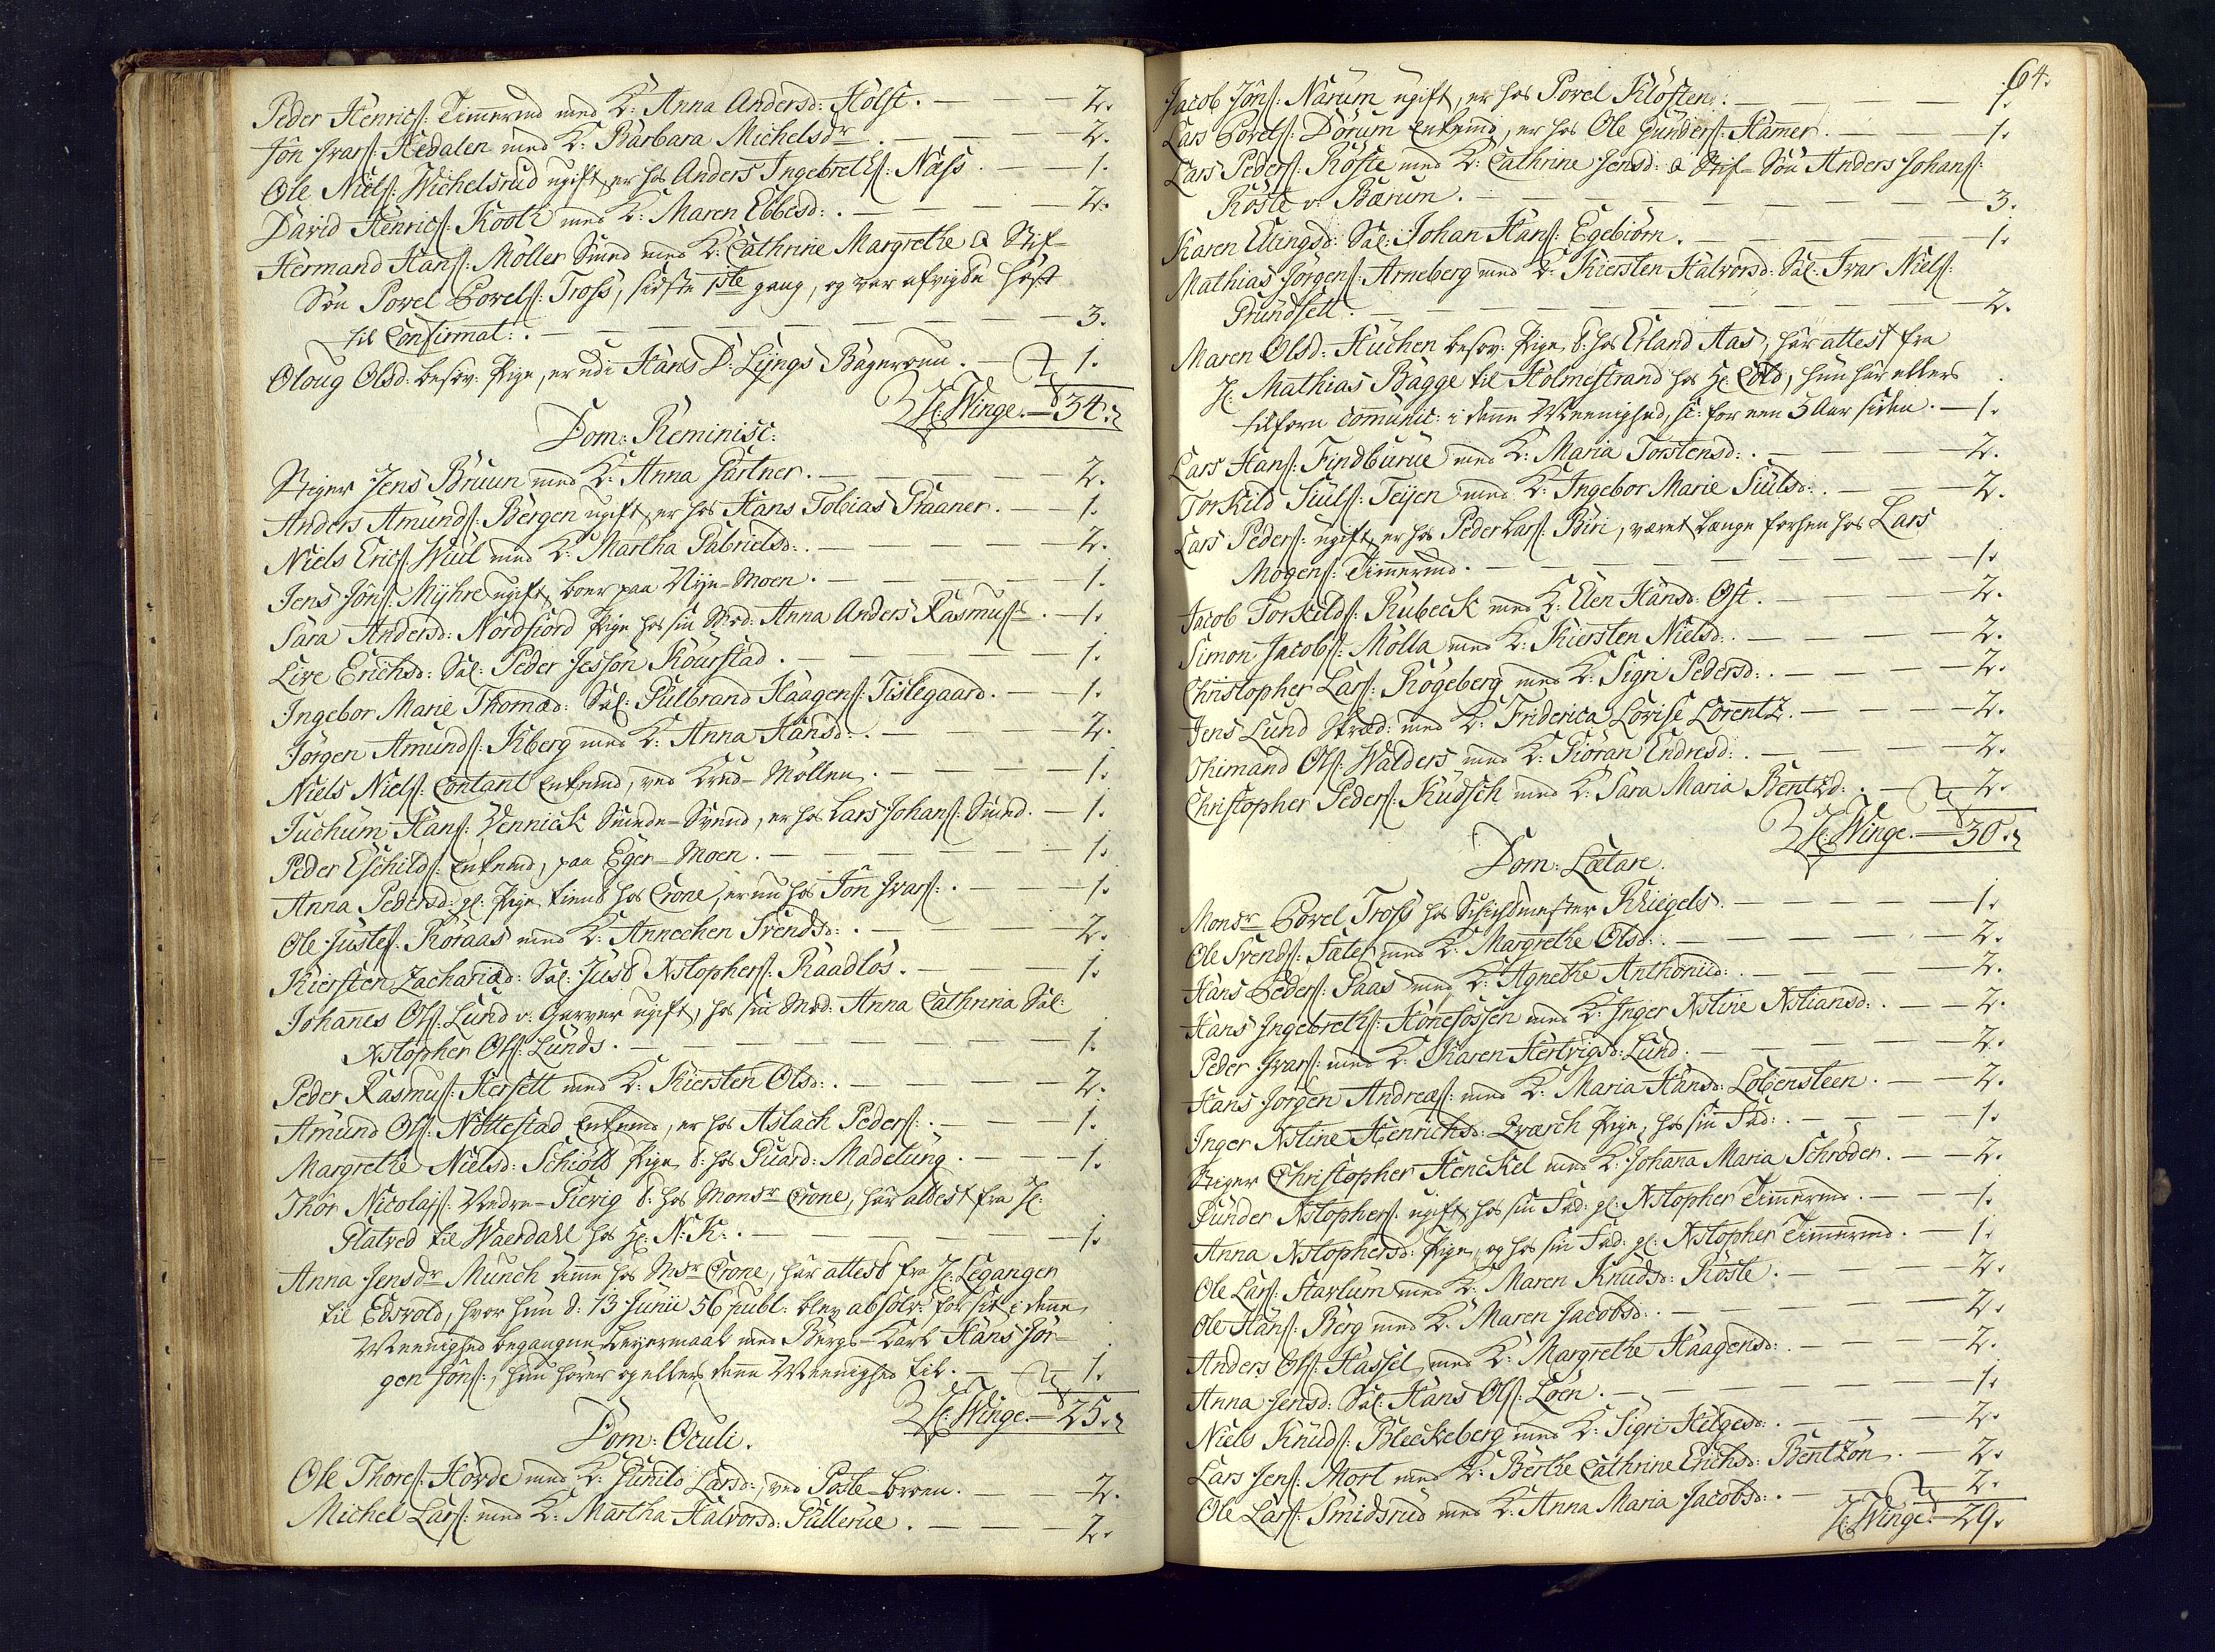 Peder Henrics: Timmermd med K: Anna Andersd: Holst. — — — 2.
Jon Ivars: Hedalen med K: Barbara Michelsdr. — — — 2.
Ole Niels: Wichelsrud ugift, er hos Anders Ingebreths: Næss. — 1.
David Henrics: Kooth med K: Maren Ebbesd:. — — — 2.
Hermand Hans: Möller Smed med K: Cathrine Margrethe & Stif-
Søn Povel Povels: Tross, sidste 1ste gang, og var afvigte Høst
til Confirmat:. — — — 3.
Oloug Olsd: besov: Pige, er udi Hans D: Lyngs Bagerom. — 1.
H: Winge. — 34.
Dom: Reminisc:
Stiger Jens Bruun med K: Anna Gartner. — — — 2.
Anders Amunds: Bergen ugift, er hos Hans Tobias Praaner. — 1.
Niels Erics: Wiul med K: Martha Gabrielsd:. — — — 2.
Jens Jons: Myhre ugift, boer paa Nye-Moen. — — — 1.
Sara Andersd: Nordfiord Pige hos sin Mod: Anna Anders Rasmuss. — 1.
Live Erichsd: Sal: Peder Jesson Kourstad. — — — 1.
Ingebor Marie Thomæd: Sal: Gulbrand Haagens: Tislegaard. — 1.
Jörgen Amunds: Kberg med K: Anna Hansd:. — — 2.
Niels Niels: Contant Enkemd, ved Krud-Möllen. — — — 1.
Juchum Hans: Vennick Smede-Svend, er hos Lars Johans: Smed. — 1.
Peder Eschilds: Enkemd, paa Eger-Moen. — — — 1.
Anna Pedersd: gl: Pige tient hos Crone, er nu hos Jon Ivars:. — — 1.
Ole Justes: Röraas med K: Annechen Svendsd:. — — — 2.
Kiersten Zachariæd: Sal: Just Xstophers: Raadlös. — — 1.
Johannes Ols: Lund v: Garver ugift, hos sin Mod: Anna Cathrina Sal:
Xstopher Ols: Lunds. — — — 1.
Peder Rasmus: Hersett med K: Kiersten Olsd:. — — — 2.
Amund Ols: Nottestad Enkemd, er hos Aslach Peders:. — — 1.
Margrethe Nielsd: Schiöld Pige, t: hos Guard: Madelung. — — 1.
Thor Nicolajs: Nedre-Gierig t: hos Monsr Crone, har attest fra H:
Glatved til Waerdahl hos H: N: K:. — — — 1.
Anna Jensdr Munch Amme hos Msr Crone, har attest fra H: Leganger
til Edsvold, hvor hun d: 13 Junii 56 publ: blev absolv: for sit i denne
Meenighed begangne Leyermaal med Bergs-Karl Hans Jör-
gen Jons:, hun hører og ellers denne Meenighed til. — 1.
H: Winge. — 25.
Dom: Oculi.
Ole Thores: Hovde med K: Gunild Larsd:, ved Poste-broen. — 2.
Michel Lars: med K: Martha Halvorsd: Gullerue. — — — 2.
64.
Jacob Jons: Narum ugift, er hos Povel Klöften. — — — 1.
Lars Povels: Dorum Enkemd, er hos Ole Gunders: Hamer. — 1.
Lars Peders: Röste med K: Cathrine Jensd: & Stif-Søn Anders Johans:
Röste v: Bærum. — — — 3.
Karen Ellingsd: Sal: Johan Hans: Egebiörn. — — — 1.
Mathias Jörgens: Arneberg med K: Kiersten Halvorsd: Sal: Ivar Niels:
Grundsett. — — — 2.
Maren Olsd: Huchen besov: Pige, t: hos Erland Aas, har attest fra
H: Mathias Bagge til Holmestrand hos H: Cold, hun har ellers
tilforn communic: i denne Meenighed, sc: for een 3 Aar siden. — 1.
Lars Hans: Findburue med K: Maria Torstensd:. — — 2.
Torkild Siuls: Teijen med K: Ingebor Marie Siulsd:. — — 2.
Lars Peders: ugift, er hos Peder Lars: Biri, været længe forhen hos Lars
Mogens: Timmermd. — — — 1.
Jacob Torkilds: Rubeck med K: Elen Hansd: Ost. — — — 2.
Simon Jacobs: Mölla med K: Kiersten Nielsd:. — — — 2.
Christopher Lars: Rögeberg med K: Sigri Pedersd:. — — — 2.
Jens Lund Skræd: med K: Friderica Lovise Lorentz. — — — 2.
Thimand Ols: Walders med K: Giöran Endresd:. — — — 2.
Christopher Peders: Kudsch med K: Sara Maria Bentzd:. — 2.
H: Winge. — 30.
Dom: Lætare.
Monsr Povel Tross hos Schichtmester Kliegels. — — — 1.
Ole Svends: Sæter med K: Margrethe Olsd:. — — — 2.
Hans Peders: Paas med K: Agnethe Anthonid:. — — — 2.
Hans Ingebreths: Hönefossen med K: Inger Xstine Xstiansd:. — — 2.
Peder Ivars: med K: Karen Hertvigsd: Lund. — — — 2.
Hans Jorgen Andreæs: med K: Maria Hansd: Lobensteen. — — 2.
Inger Xstine Henrichsd: Qværch Pige, hos sin Fad:. — — — 1.
Stiger Christopher Henckel med K: Johanna Maria Schröder. — — 2.
Gunder Xstophers: ugift, hos sin Fad: gl: Xstopher Timmermd. — — 1.
Anna Xstophersd: Pige, og hos sin Fad: gl: Xstopher Timmermd. — 1.
Ole Lars: Harlum med K: Maren Knudsd: Röste. — — — 2.
Ole Hans: Berg med K: Maren Jacobsd:. — — — 2.
Anders Ols: Hassel med K: Margrethe Haagensd:. — — — 2.
Anna Jensd: Sal: Hans Ols: Loen. — — — 1.
Niels Knuds: Bleckeberg med K: Sigri Helgesd:. — — — 2.
Lars Jens: Mort med K: Berthe Cathrine Erichsd: Bentzön. — 2.
Ole Lars: Smidsrud med K: Anna Maria Jacobsd:. — 2.
H: Winge. — 29.